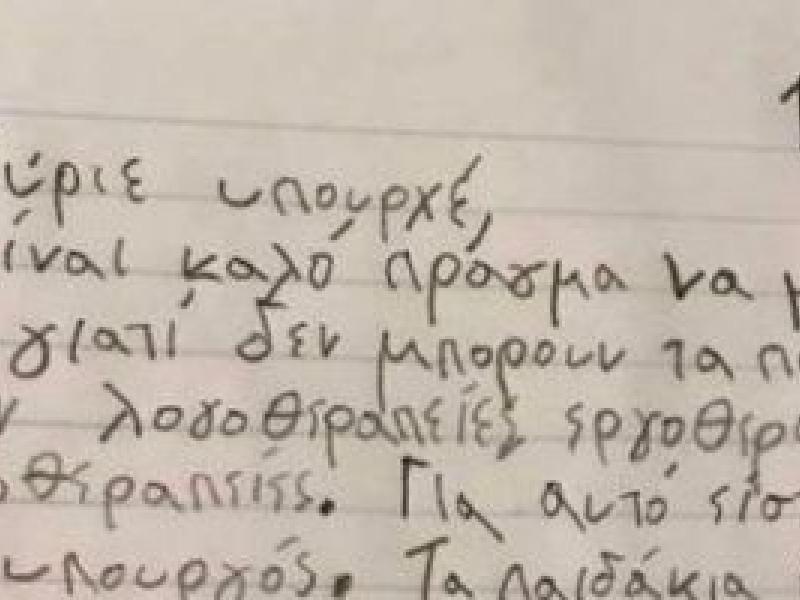 ύριε υπουρχέ,
ίναι καλό πράσμα να μ
γιατί δεν μπορουν τα πα
ν λογοθεραπείες εργοθερα
οθεραπείες. Για αυτό είστ
υπουργός. Τα παιδάκια